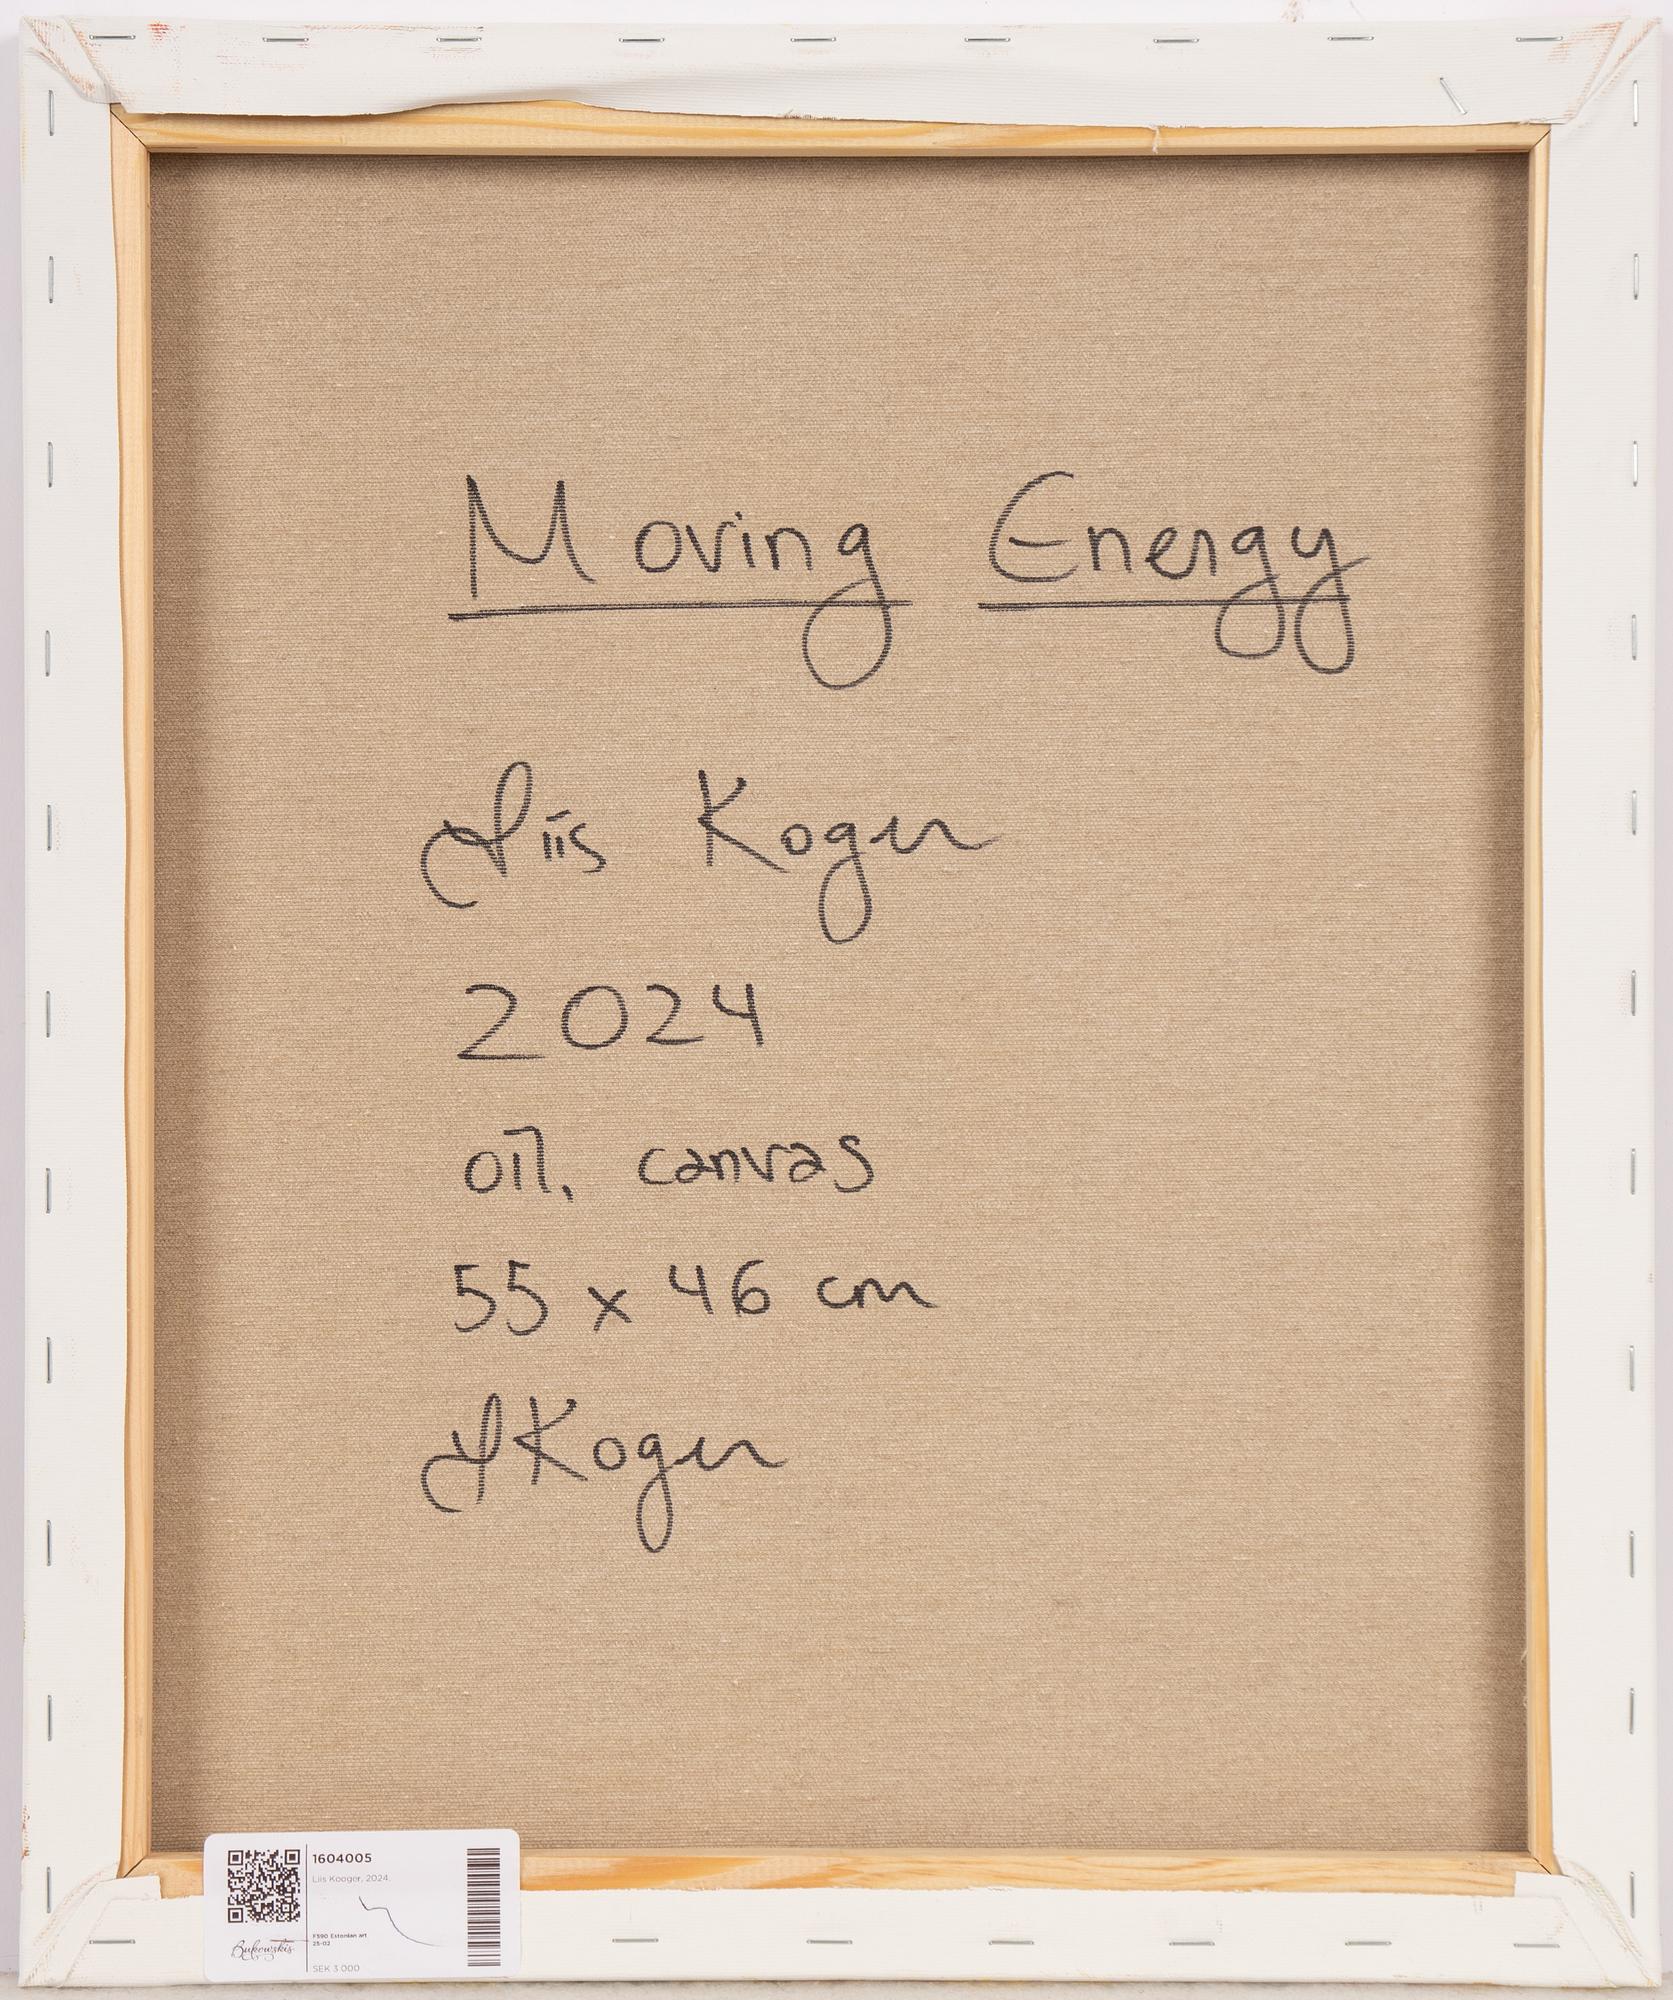 Moving Energy
Liis Koger
2024
oil, canvas
55 x 46 cm
LKoger
1604005
Liis Kooger, 2024.
F590 Estonian art
25-02
Bukowskis
SEK 3 000